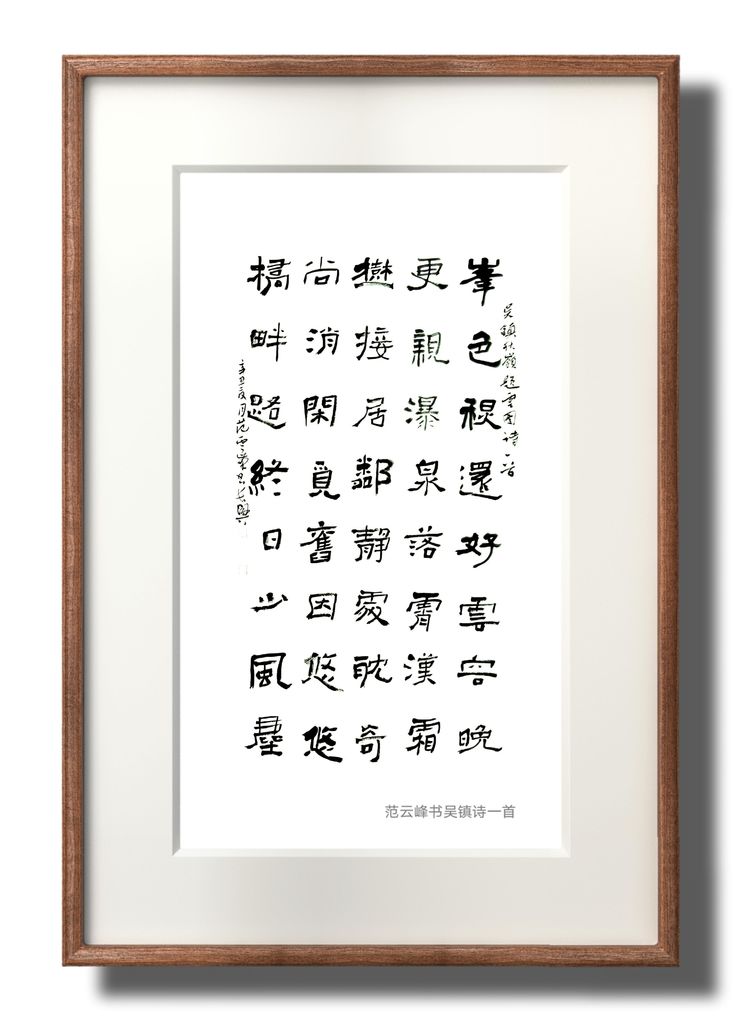 吴鎮秋嶺歸雲图诗一首
峯色秋還好雲容晚
更親瀑泉落霄漢霜
樹接居鄰靜處耽奇
尚消閑覓舊因悠悠
橋畔路終日少風塵
辛丑夏月范雲峯书大興
范云峰书吴镇诗一首